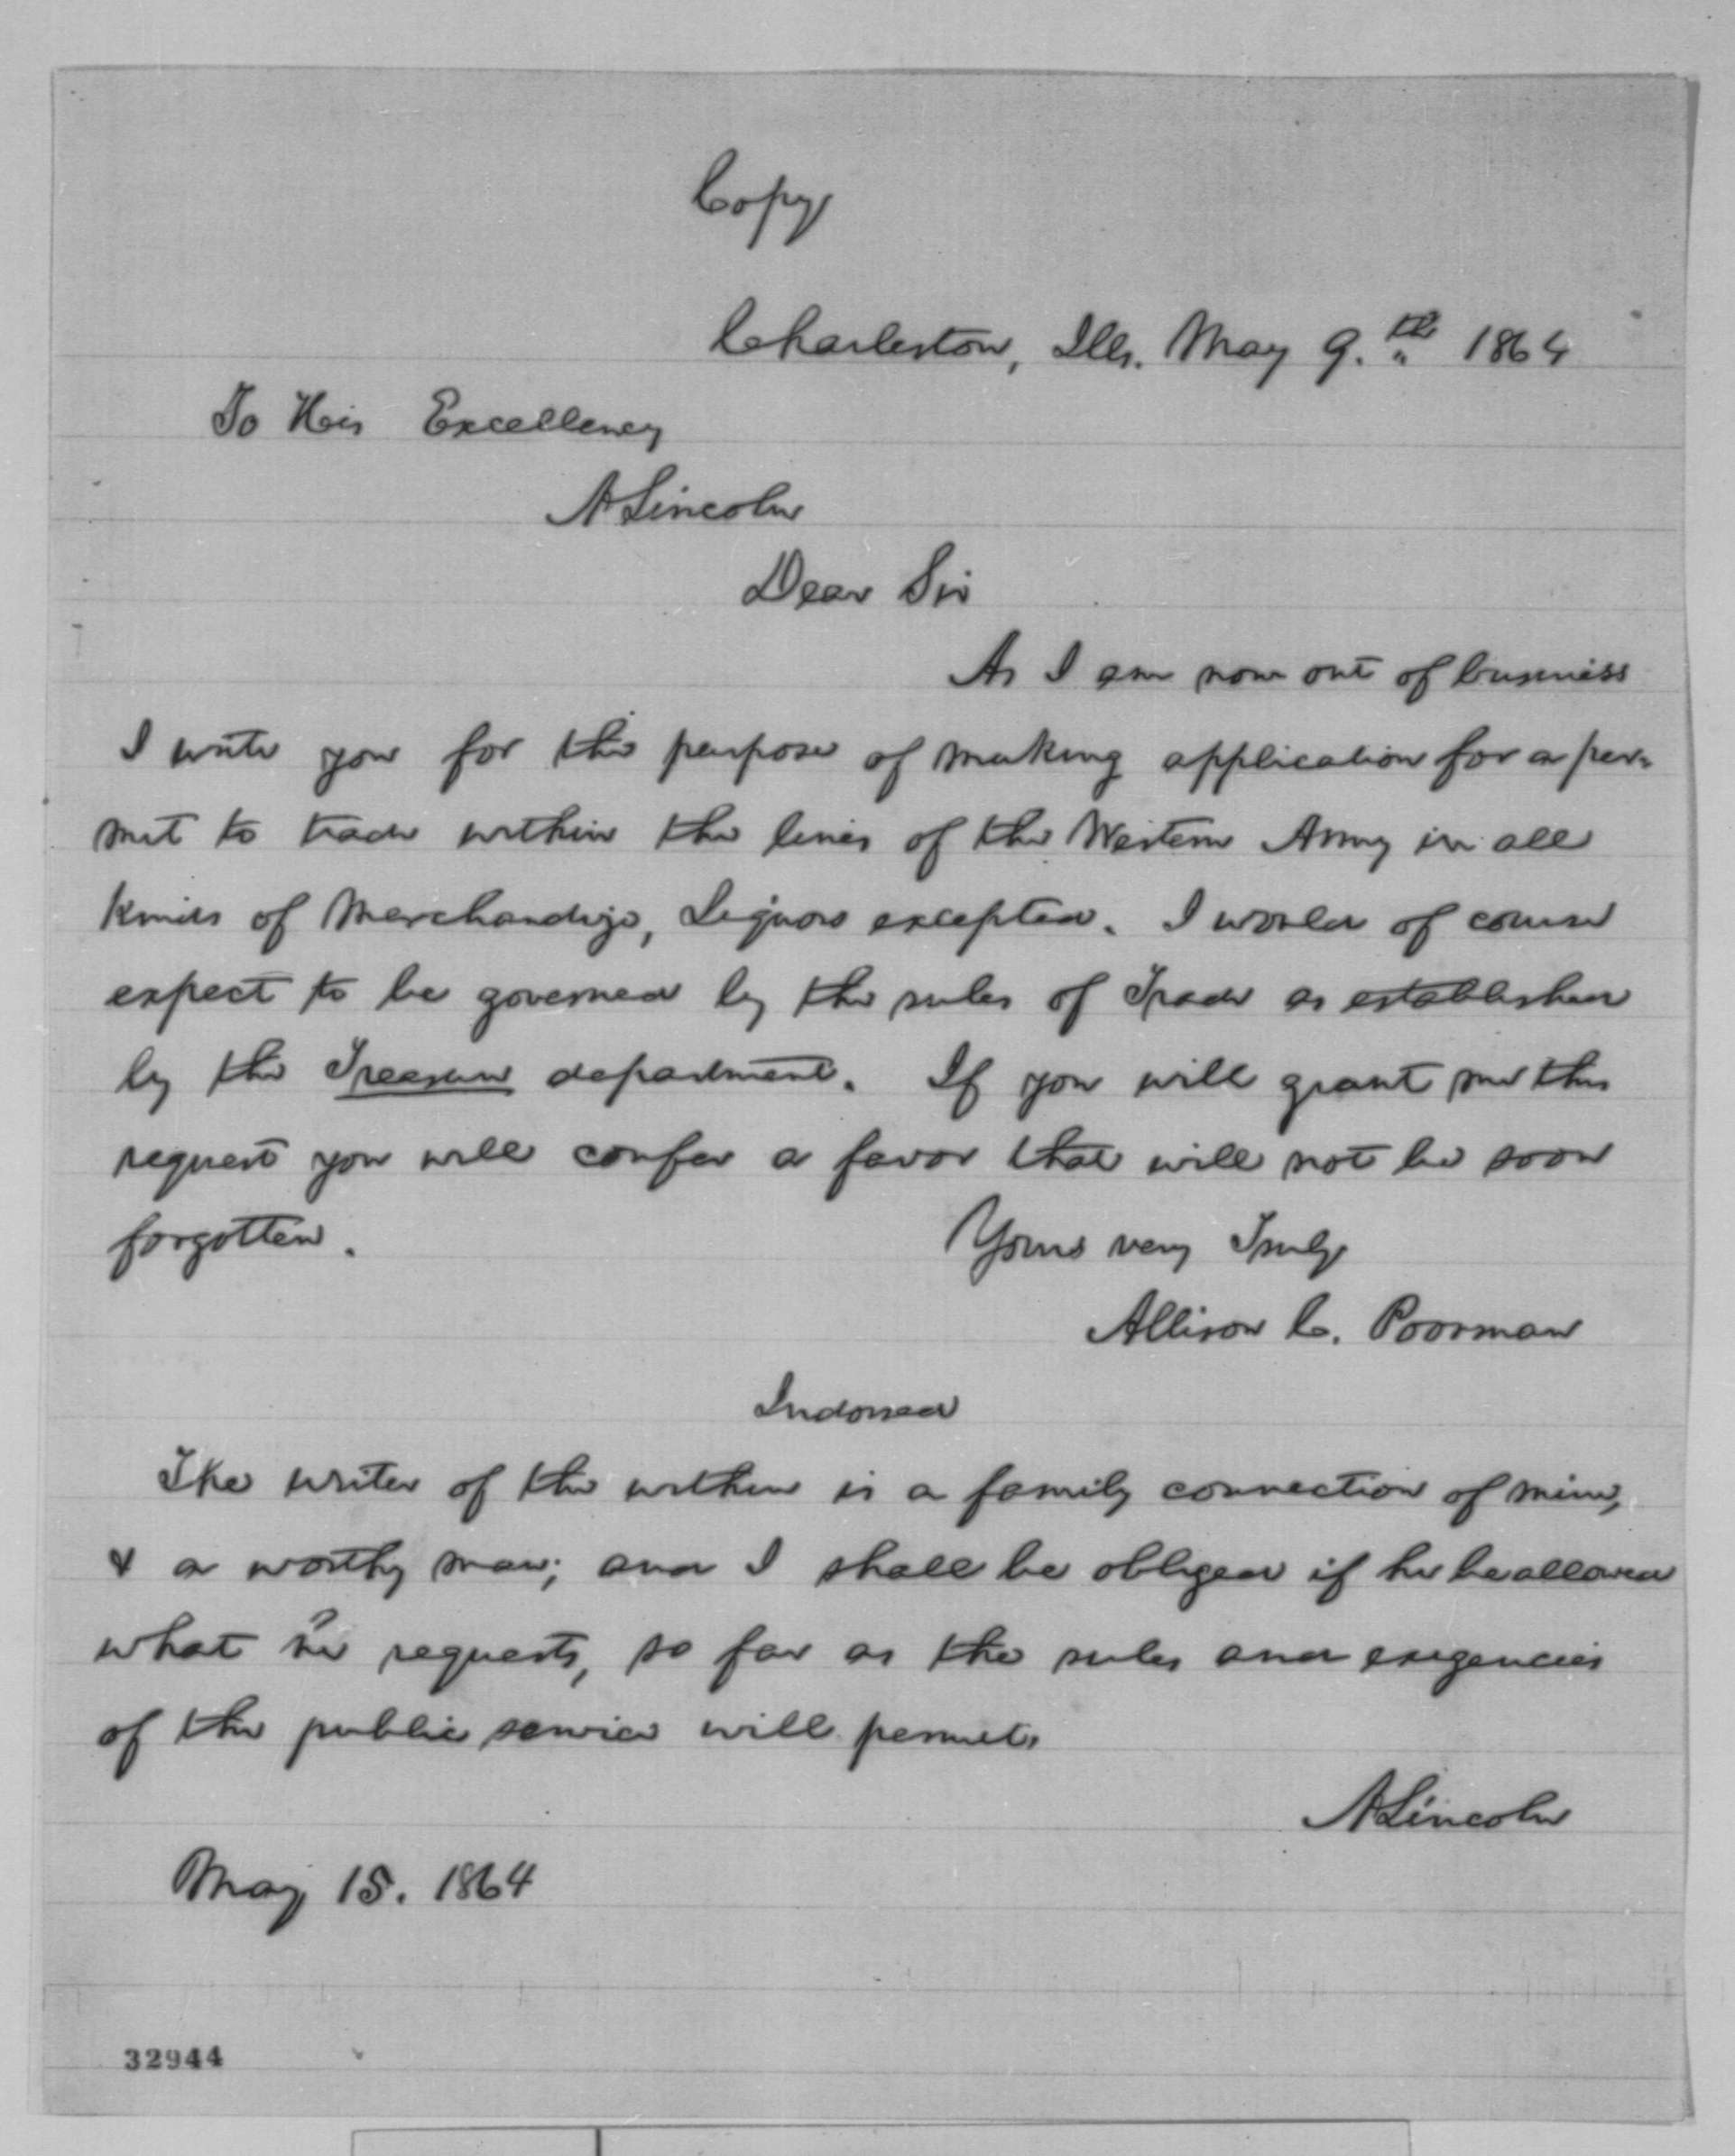 Copy
Charleston, Ills. May 9.th 1864
To His Excellency
A Lincoln
Dear Sir
As I am now out of business
I write you for the purpose of making application for a per-
mit to trade within the lines of the Western Army in all
Kinds of Merchandize, Liquors excepted. I would of course
expect to be governed by the rules of Trade as established
by the Treasury department. If you will grant me this
request you will confer a favor that will not be soon
forgotten.
Yours very Truly
Allison C. Poorman
Indorsed
The writer of the within is a family connection of mine,
& a worthy man; and I shall be obliged if he be allowed
what he requests, so far as the rules and exigencies
of the public service will permit.
A Lincoln
May 15. 1864
32944